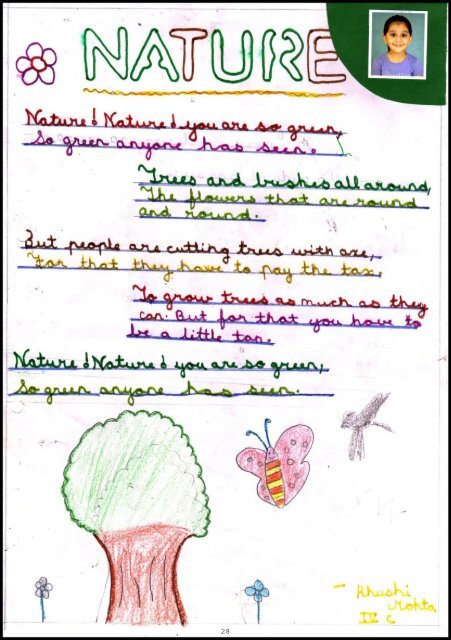 NATURE
Nature! Nature! you are so green,
So green anyone has seen.
Trees and bushes all around,
The flowers that are round
and round.
But people are cutting trees with axe,
For that they have to pay the tax.
To grow trees as much as they
can. But for that you have to
be a little tan.
Nature! Nature! you are so green,
So green anyone has seen.
- Khushi
Mohta
IV C
28